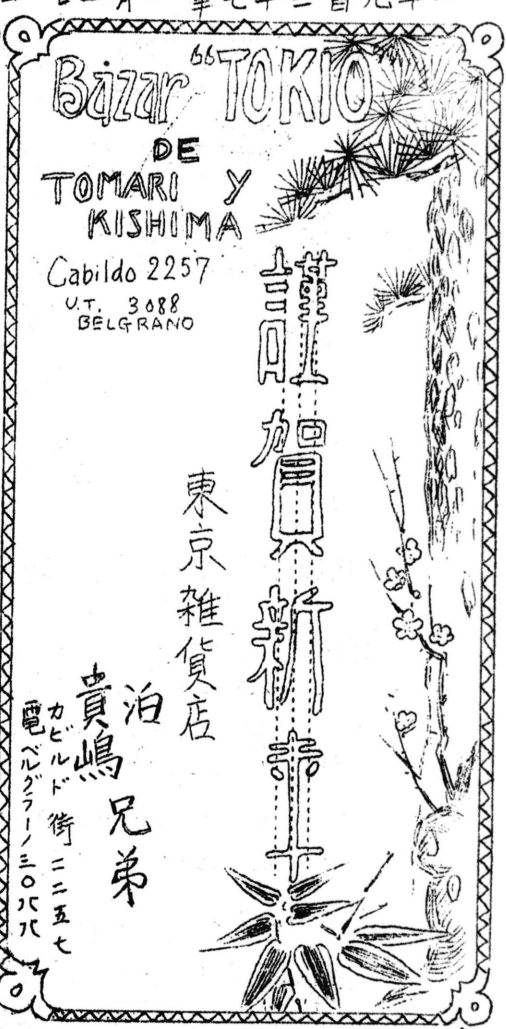 Bazar "TOKIO
DE
TOMARI Y
KISHIMA
Cabildo 2257
U.T. 3088
BELGRANO
謹賀新年
東京雑貨店
泊
貴嶋
兄弟
カビルド街二二五七
電ベルグラーノ三〇八八